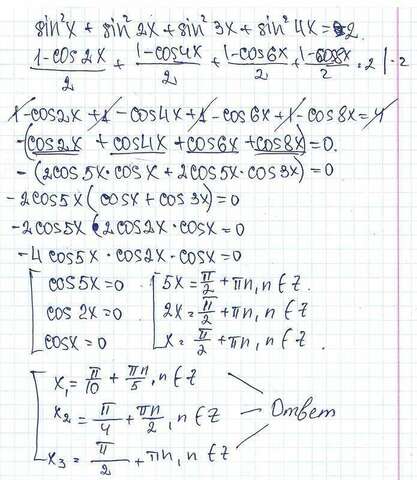 sin²x + sin²2x + sin²3x + sin²4x = 2
(1-cos2x)/2 + (1-cos4x)/2 + (1-cos6x)/2 + (1-cos8x)/2 = 2 |·2
1-cos2x+1-cos4x+1-cos6x+1-cos8x=4
-(cos2x + cos4x + cos6x + cos8x)=0.
-(2cos5x·cosx + 2cos5x·cos3x)=0
-2cos5x(cosx+cos3x)=0
-2cos5x·2cos2x·cosx=0
-4cos5x·cos2x·cosx=0
[cos5x=0 [5x=π/2+πn, n∈Z.
cos2x=0 2x=π/2+πn, n∈Z
cosx=0 x=π/2+πn, n∈Z.
[x₁=π/10+πn/5, n∈Z
x₂=π/4+πn/2, n∈Z - Ответ
x₃=π/2+πn, n∈Z